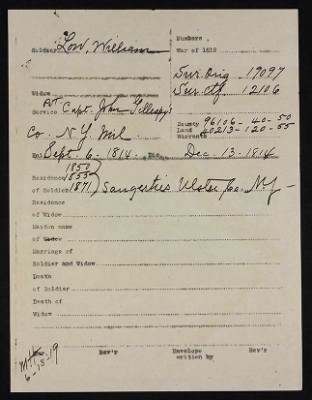 Soldier Low, William
Numbers
War of 1812
Sur. Orig. 19097
Sur. Ctf. 12106
Widow
Service Capt. John Gillespy's
Co. N.Y. Mil
Bounty 96106-40-50
Land 40213-120-55
Warrants
Sept. 6-1814. Dec. 13-1814
1850
Residence 1855
of Soldier 1871 Saugerties Ulster Co. N.Y.
Residence
of Widow
Maiden name
of Widow
Marriage of
Soldier and Widow
Death
of Soldier
Death of
Widow
Rev'r Envelope written by Rev'r
6-13-19